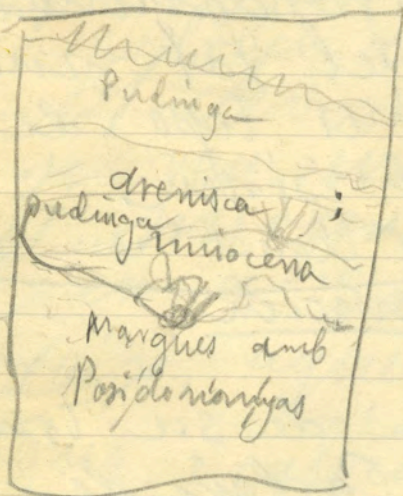 Pudinga
arenisca ;
pudinga miocena
Margues amb
Posidonomyas